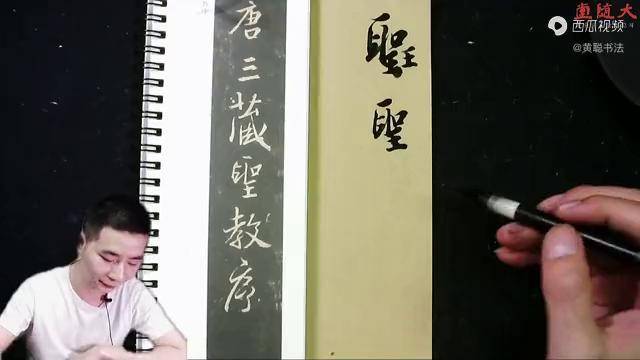 唐三藏聖教序
聖
聖
大随畫
西瓜视频
@黄聪书法